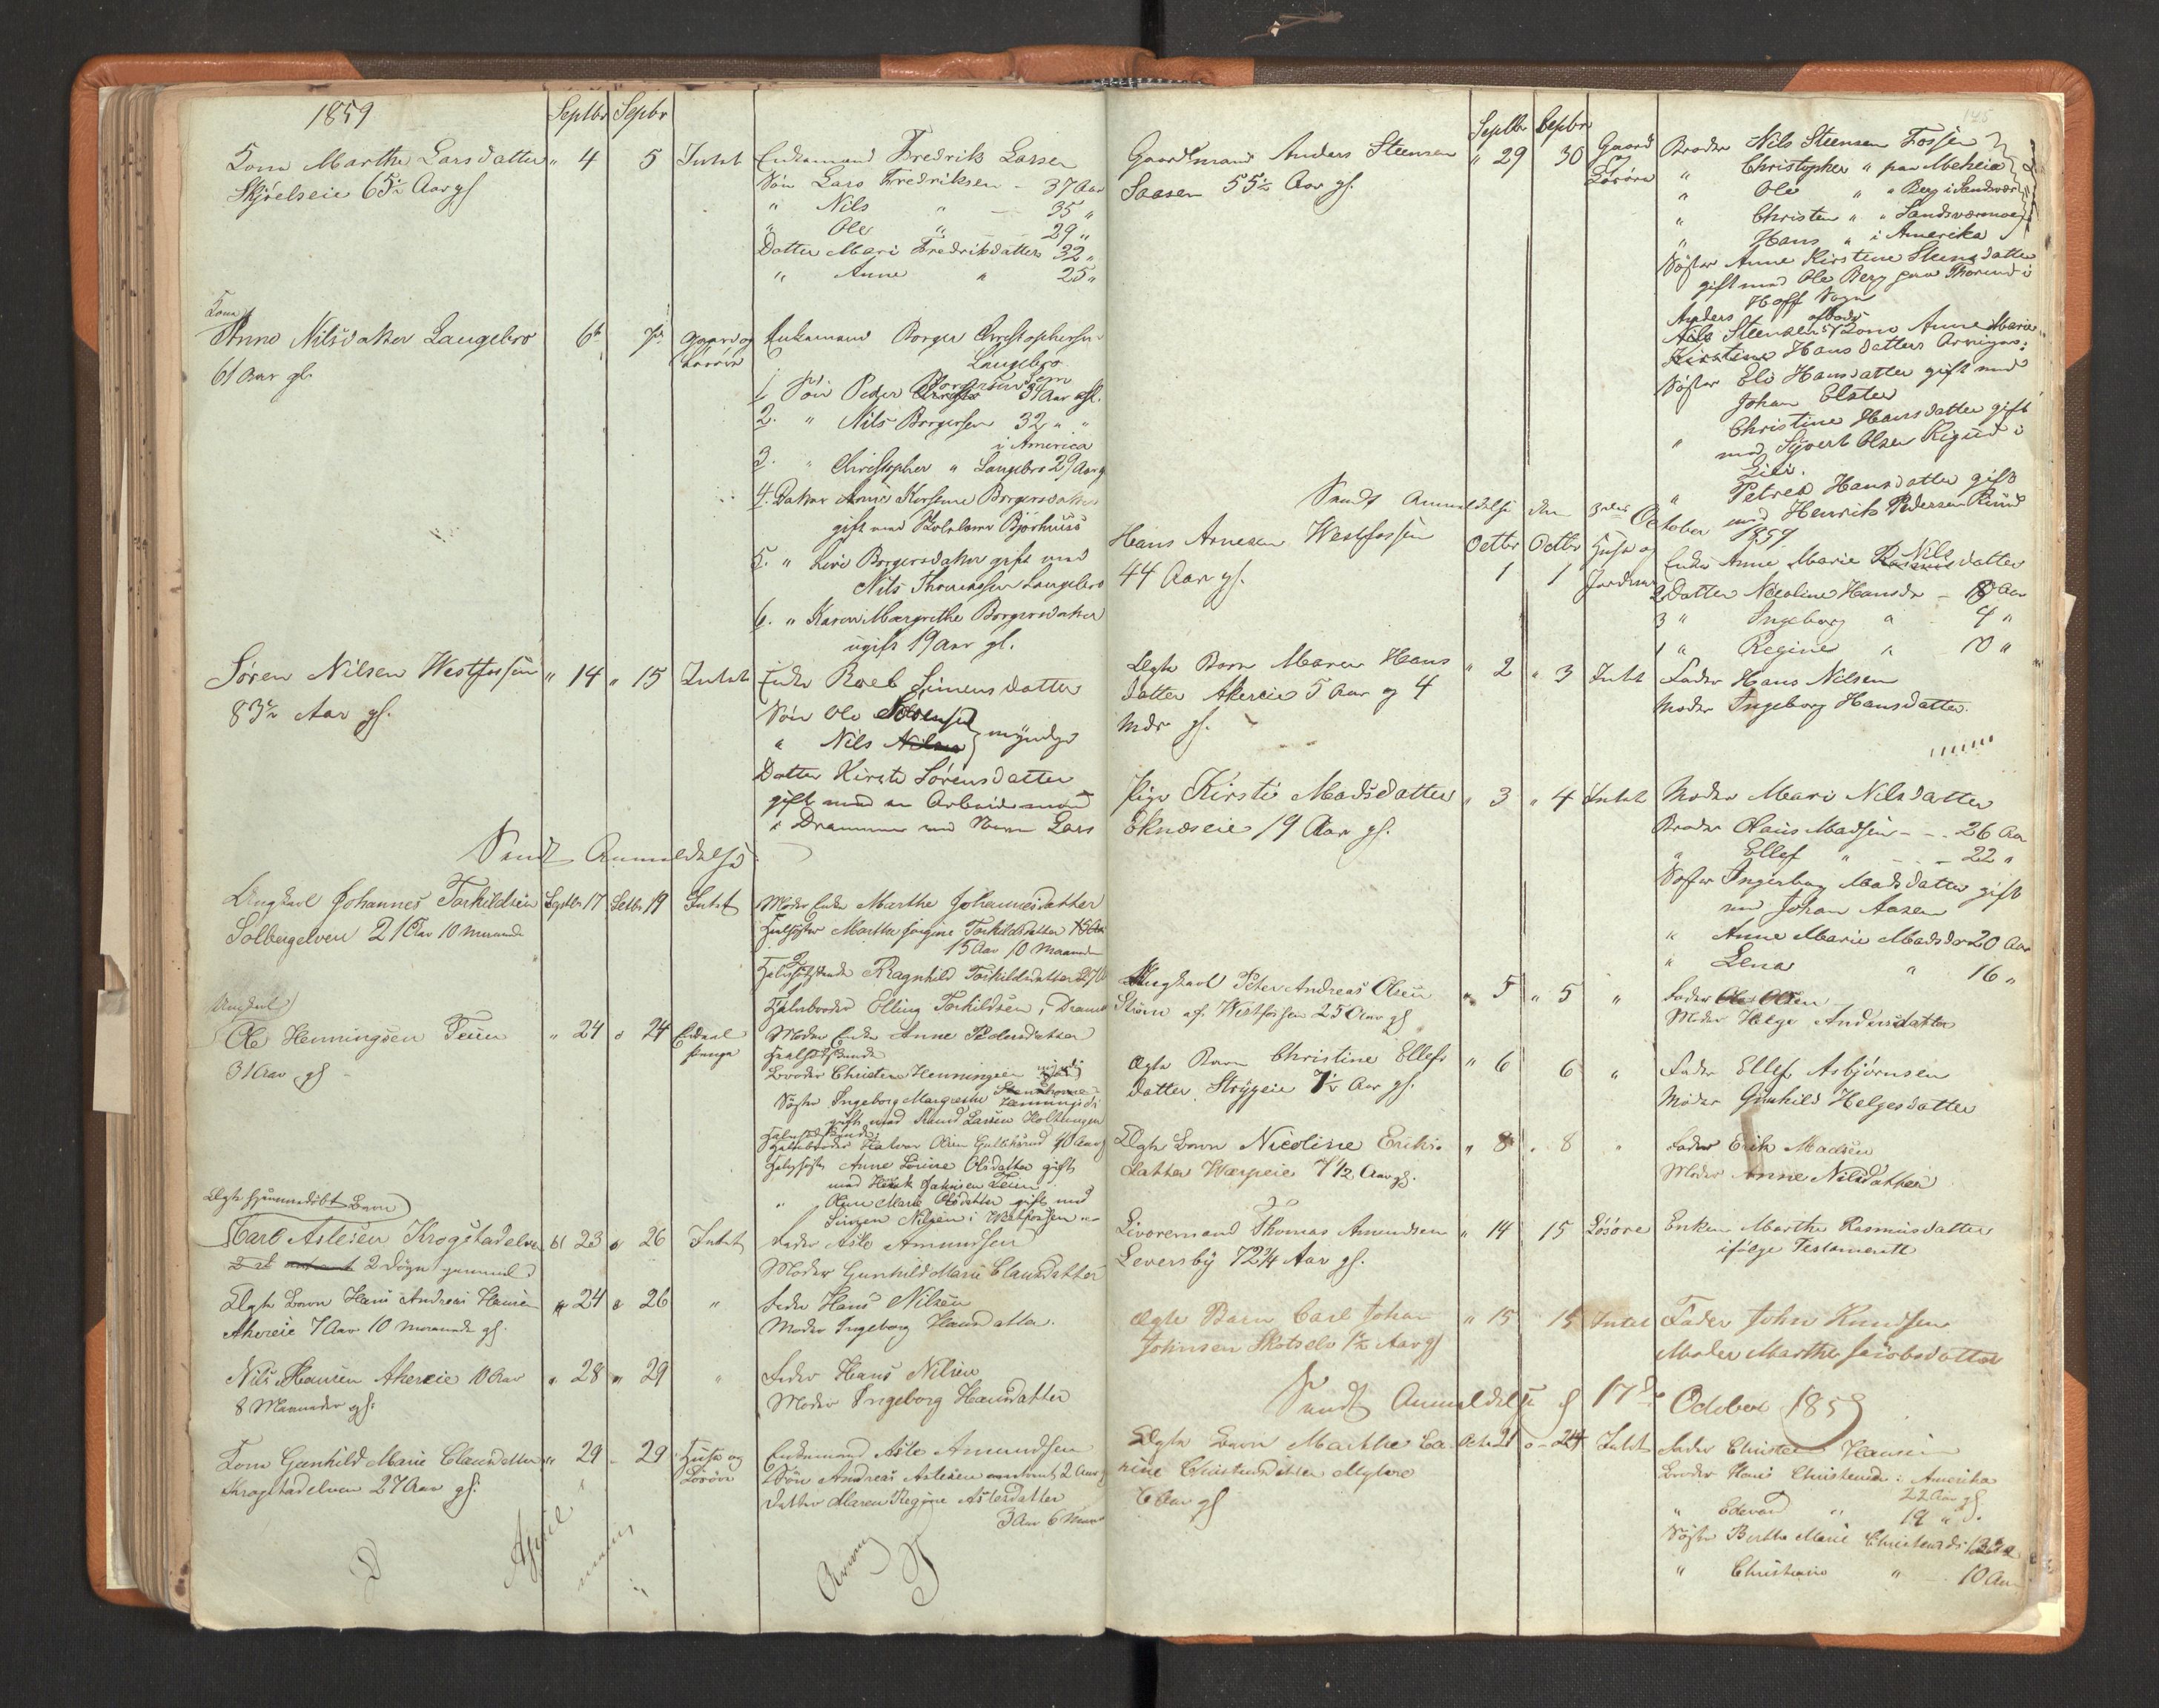 1859 Septbr Sepbr
Kone Marthe Larsdatter " 4 5 Intet Enkemand Fredrik Larsen
Skjøelseie 65½ Aar gl Søn Lars Fredriksen - 37 Aar
" Nils " - 35 "
" Ole " - 29 "
Datter Mari Fredriksdatter 32 "
" Anne " 25 "
Kone
Anne Nilsdatter Langebro 6te 7de Gaard og Enkemand Borger Christophersen
61 Aar gl. Løsøre Langebro
1 Søn Peder Borgersen 34 Aar gl.
2. " Nils Borgersen 32 " "
i America
3. " Christopher " Langebro 29 Aar g
4. Datter Anne Kirstine Borgersdatter
gift med Bjørhuus
5. " Live Borgersdatter gift med
Nils Thomassen Langebro
6. " Karen Margrethe Borgersdatter
ugift 19 Aar gl.
Søren Nilsen Westfossen " 14 " 15 Intet Enke Roel Simensdatter
83½ Aar gl. Søn Ole Sørensen
" Nils myndige
Datter Kirsti Sørensdatter
gift med en Arbeidsmand
i Drammen ved Navn Lars
Sendt Anmeldelse
Ungkarl Johannes Torkildsen Septbr 17 Setbr 19 Intet Moder Enke Marthe Johannesdatter
Solbergelven 21 Aar 10 Maaneder Helsøster Marthe Jørgine Torkildsdatter
15 Aar 10 Maaneder
Ragnhild Torkildsdatter
Halvbroder Elling Torkildsen i Dramm
Ungkarl
Ole Henningsen Teien " 24 " 24 Moder Enke Anne Pedersdatter
31 Aar gl - Helsødskende
Broder Christen Henningsen myndig
Søster Ingeborg Margrethe Henningsd:
gift med Knud Larsen
Halvsødskende
Halvbroder Halvor Olsen 40 Aar g
Halvsøster Anne Lorine Olsdatter gift
med Teien
" Anne Marie Olsdatter gift med
Simen Nilsen i Westfossen
Ægte Barn
Karl Aslesen Krogstadelven 23 " 26 Intet Fader Asle Amundsen
2 Døgn gammel Moder Gunhild Marie Clausdatter
Ægte Barn Hans Andreas Hansen " 24 " 26 " Fader Hans Nilsen
Akereie 7 Aar 10 Maaneder gl. Moder Ingeborg Hansdatter.
Nils Hansen Akereie 10 Aar " 28 " 29 " Fader Hans Nilsen
8 Maaneder gl. Moder Ingeborg Hansdatter
Kone Gunhild Marie Clausdatter " 29 - 29 Huse og Enkemand Asle Amundsen
Krogstadelven 27 Aar gl: Løsøre Søn Andreas Aslesen omtrent 2 Aar g
Datter Maren Regine Aslesdatter
3 Aar 6 Maan
Septbr Septbr 145
Gaardmand Anders Steensen " 29 30 Gaard Broder Nils Steensen Fossen
Saasen 55½ Aar gl. og Løsøre " Christopher " paa Meheia
" Ole " " Berg i Sandsvær
" Christen " " Sandsværmoen
" Hans " i Amerika
Søster Anne Kirstine Steensdatter
gift med Ole Berg paa Thorrud i
Hoff Sogn
Anders Steensens afdøde Kone Anne Marie
Kirstine Hansdatters Arvinger:
Søster Eli Hansdatter gift med
Johan Elster
" Christine Hansdatter gift
med Syvert Olsen Kigsrud i
Lier.
" Petrea Hansdatter gift
med Henrik Pedersen Ruud
Sendt Anmeldelse den 3die October 1859
Hans Arnesen Westfossen Octbr Octbr Huse og Enke Anne Marie Nilsdatter
44 Aar gl. 1 1 Jordvei 2 Datter Nicoline Hansdr - 8 Aar
3 " Ingeborg " 4 "
1 " Regine " 10 "
Ægte Barn Maren Hans " 2 " 3 Intet Fader Hans Nilsen
datter Akereie 5 Aar og 4 Moder Ingeborg Hansdatter.
Mdr gl.
Pige Kirsti Madsdatter " 3 " 4 Intet Moder Mari Nilsdatter
Eknæseie 19 Aar gl. Broder Hans Madsen - - 26 Aar
" Ellef " - - 22 "
Søster Ingeborg Madsdatter gift
med Johan Aasen
" Anne Marie Madsdr 20 Aar
" Lena " 16 "
Ungkarl Peter Andreas Olsen " 5 " 5 " Fader Ole Olsen
Strøm af Westfossen 25 Aar gl Moder Helge Andersdatter
Ægte Barn Christine Ellefs " 6 6 " Fader Ellef Asbjørnsen
datter Strygeie 7½ Aar gl. Moder Gunhild Helgesdatter
Ægte Barn Nicoline Eriks " 8 " 8 " Fader Erik Madsen
datter 7½ Aar gl. Moder Anne Nilsdatter
Livøremand Thomas Amundsen " 14 15 Løsøre Enken Marthe Rasmusdatter
Leversby 72¼ Aar gl. ifølge Testamente
Ægte Barn Carl Johan " 15 15 Intet Fader John Knudsen
Johnsen Skotselv 1½ Aar gl Moder Marthe Jacobsdatter
Sendt Anmeldelse d 17de October 1859
Ægte Barn Marthe La- Octbr 21 - 24 Intet Fader Christen Hansen
rine Christensdatter Broder Hans Christensen i Amerika
6 Aar gl 22 Aar gl.
" Edevard " 19 " "
Søster Berthe Marie Christensdr
" Christiane " - 10 Aar